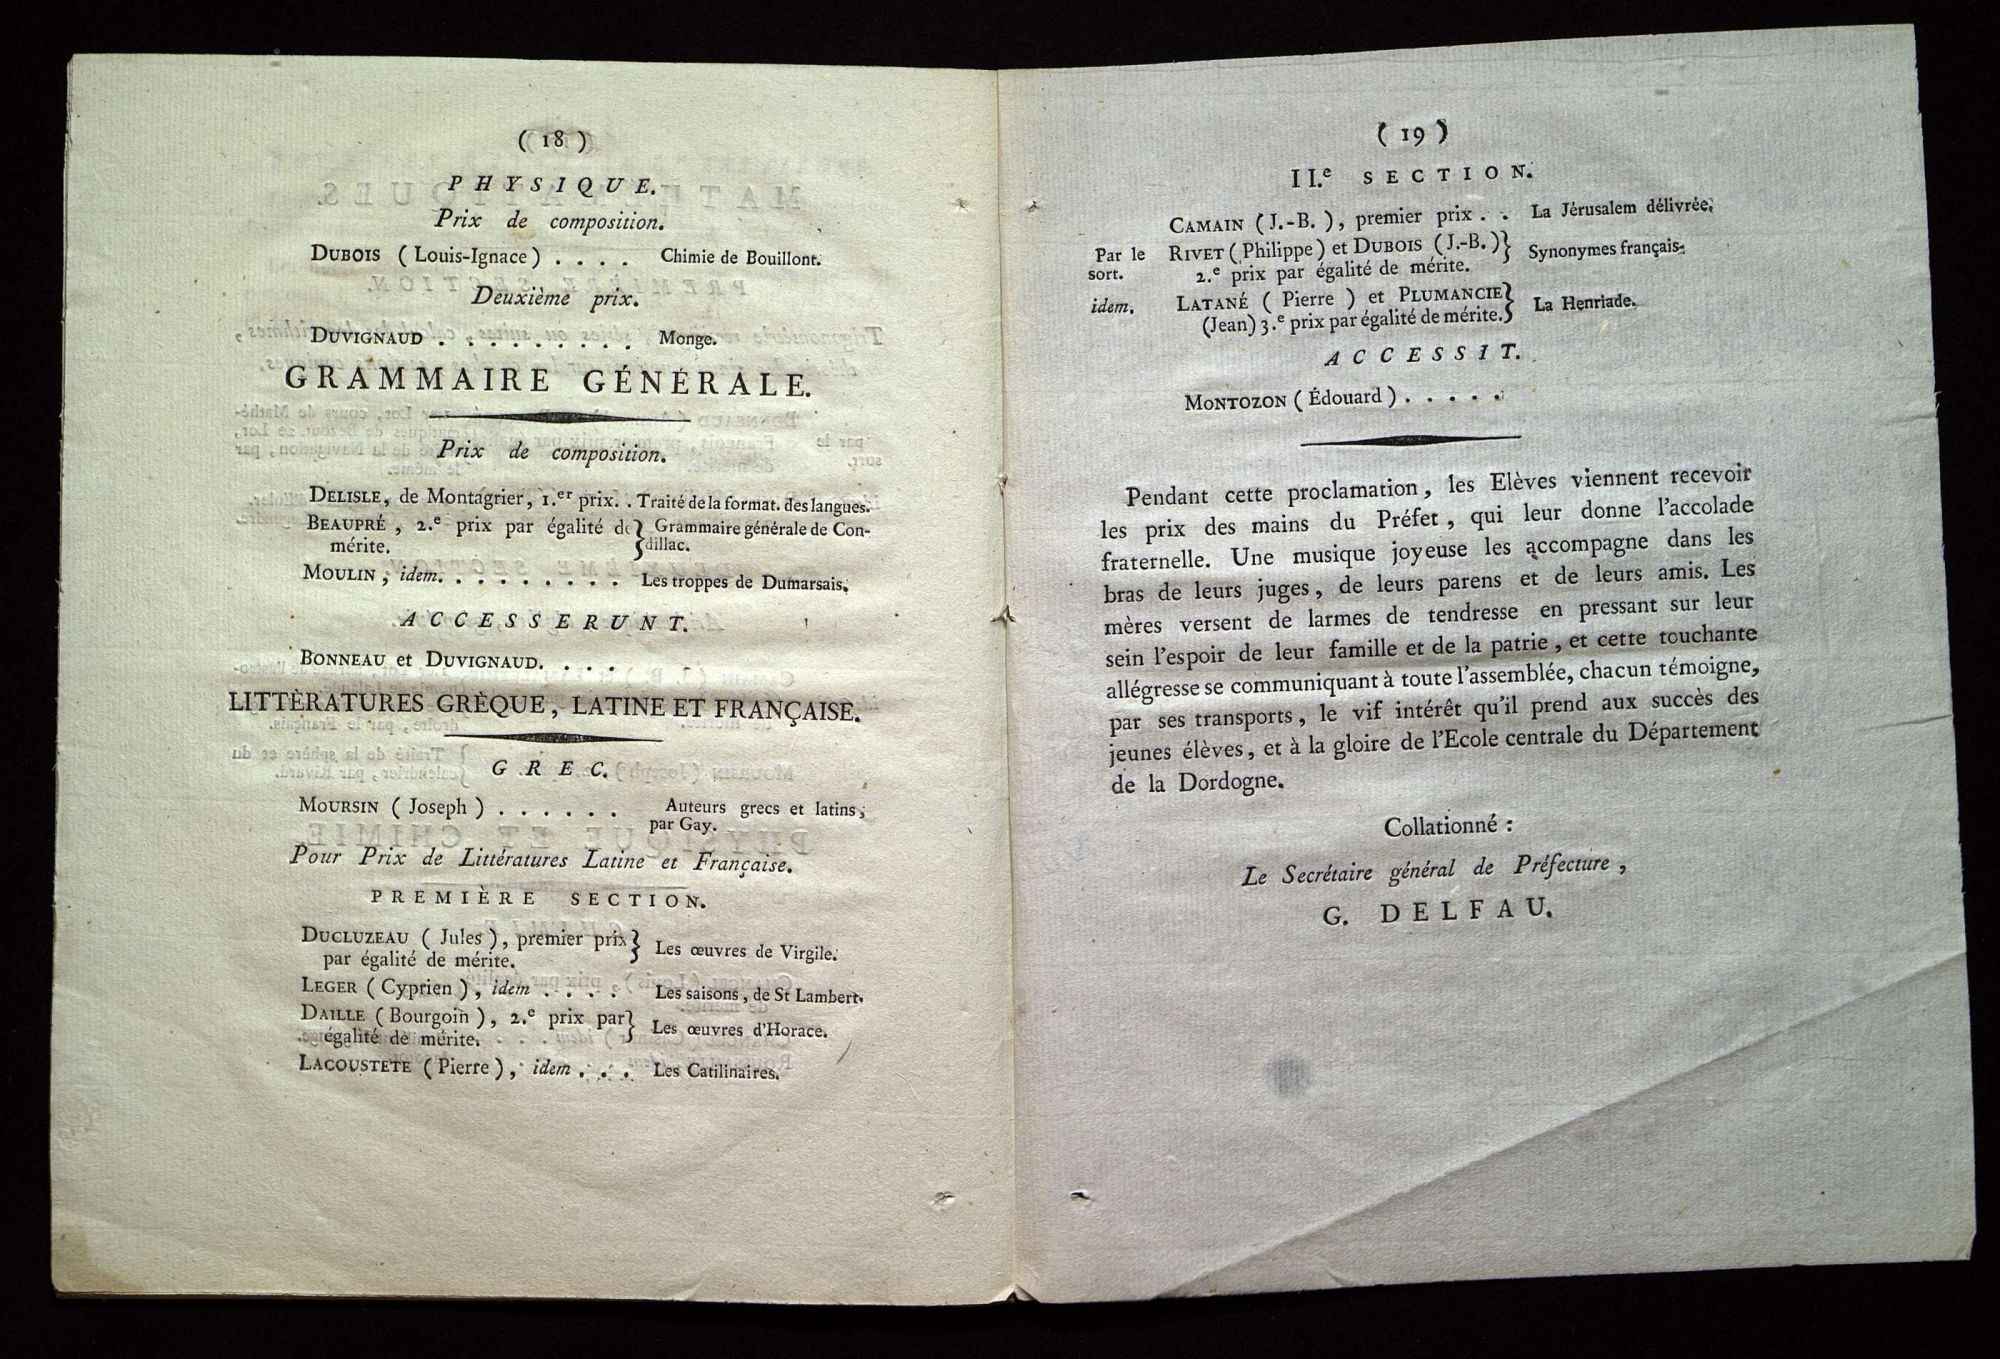 ( 18 )
PHYSIQUE.
Prix de composition.
DUBOIS ( Louis-Ignace ) . . . . Chimie de Bouillont.
Deuxième prix.
DUVIGNAUD . . . . . . . . . . Monge.
GRAMMAIRE GÉNÉRALE.
Prix de composition.
DELISLE, de Montagrier, 1.er prix. . Traité de la format. des langues.
BEAUPRÉ, 2.e prix par égalité de } Grammaire générale de Con-
mérite. dillac.
MOULIN, idem. . . . . . . . . . Les troppes de Dumarsais.
ACCESSERUNT.
BONNEAU et DUVIGNAUD. . . .
LITTÈRATURES GRÈQUE, LATINE ET FRANÇAISE.
GREC.
MOURSIN ( Joseph ) . . . . . . Auteurs grecs et latins,
par Gay.
Pour Prix de Littératures Latine et Française.
PREMIÈRE SECTION.
DUCLUZEAU ( Jules ), premier prix } Les œuvres de Virgile.
par égalité de mérite.
LEGER ( Cyprien ), idem . . . . Les saisons, de St Lambert.
DAILLE ( Bourgoin ), 2.e prix par } Les œuvres d'Horace.
égalité de mérite.
LACOUSTETE ( Pierre ), idem . . . Les Catilinaires.
( 19 )
II.e SECTION.
CAMAIN ( J.-B. ), premier prix . . La Jérusalem délivrée.
Par le RIVET ( Philippe ) et DUBOIS ( J.-B. ) } Synonymes français.
sort. 2.e prix par égalité de mérite.
idem. LATANÉ ( Pierre ) et PLUMANCIE } La Henriade.
(Jean) 3.e prix par égalité de mérite.
ACCESSIT.
MONTOZON ( Édouard ) . . . . .
Pendant cette proclamation, les Elèves viennent recevoir
les prix des mains du Préfet, qui leur donne l'accolade
fraternelle. Une musique joyeuse les accompagne dans les
bras de leurs juges, de leurs parens et de leurs amis. Les
mères versent de larmes de tendresse en pressant sur leur
sein l'espoir de leur famille et de la patrie, et cette touchante
allégresse se communiquant à toute l'assemblée, chacun témoigne,
par ses transports, le vif intérêt qu'il prend aux succès des
jeunes élèves, et à la gloire de l'Ecole centrale du Département
de la Dordogne.
Collationné :
Le Secrétaire général de Préfecture,
G. DELFAU.